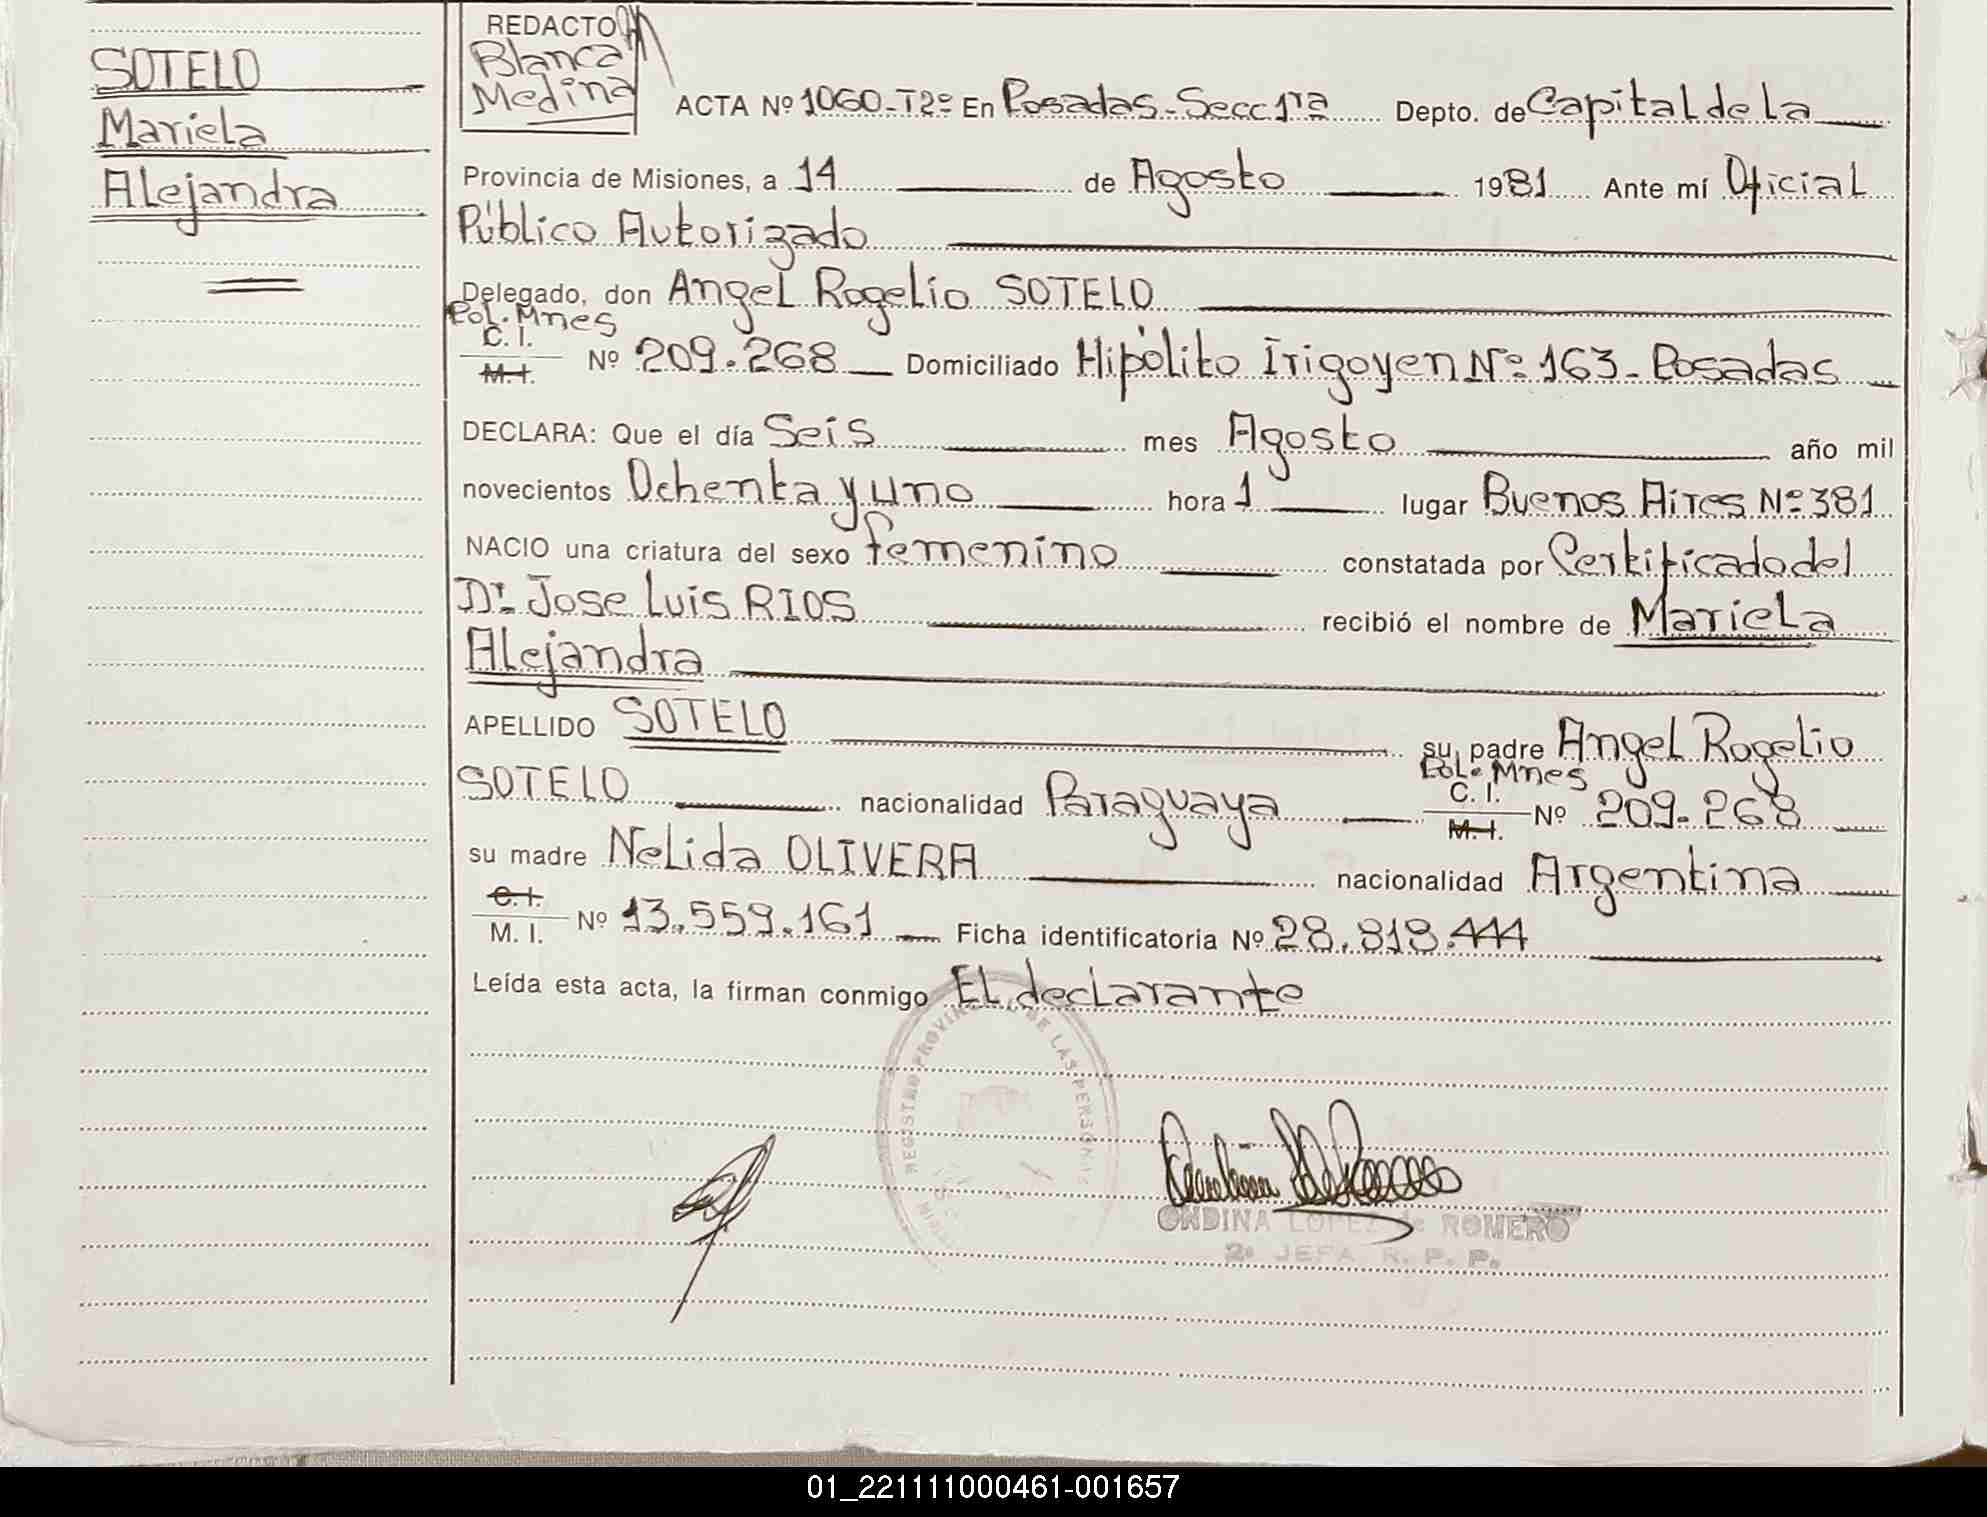 SOTELO
Mariela
Alejandra
REDACTO
Blanca
Medina
ACTA Nº 1060-T2º En Posadas-Secc 1ra Depto. de Capital de la
Provincia de Misiones, a 14 de Agosto 1981 Ante mí Oficial
Público Autorizado
Delegado, don Angel Rogelio SOTELO
Pol. Mnes
C. I.
M. I. Nº 209.268 Domiciliado Hipólito Irigoyen Nº 163- Posadas
DECLARA: Que el día Seis mes Agosto año mil
novecientos Ochenta y uno hora 1 lugar Buenos Aires Nº 381
NACIO una criatura del sexo femenino constatada por Certificado del
Dr. Jose Luis RIOS recibió el nombre de Mariela
Alejandra
APELLIDO SOTELO su padre Angel Rogelio
Pol. Mnes
SOTELO nacionalidad Paraguaya C. I. M. I. Nº 209.268
su madre Nelida OLIVERA nacionalidad Argentina
C. I.
M. I. Nº 13.559.161 Ficha identificatoria Nº 28.818.444
Leída esta acta, la firman conmigo El declarante
REGISTRO PROVINCIAL DE LAS PERSONAS
ONDINA LOPEZ de ROMERO
2º JEFA R. P. P.
01_221111000461-001657